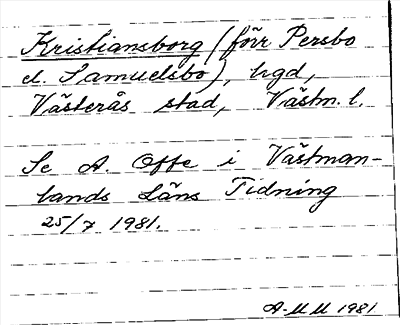 Kristiansborg (förr Persbo
el. Samuelsbo), hgd,
Västerås stad, Västm. l.
Se A. Offe i Västman-
lands Läns Tidning
25/7 1981.
A-MM 1981